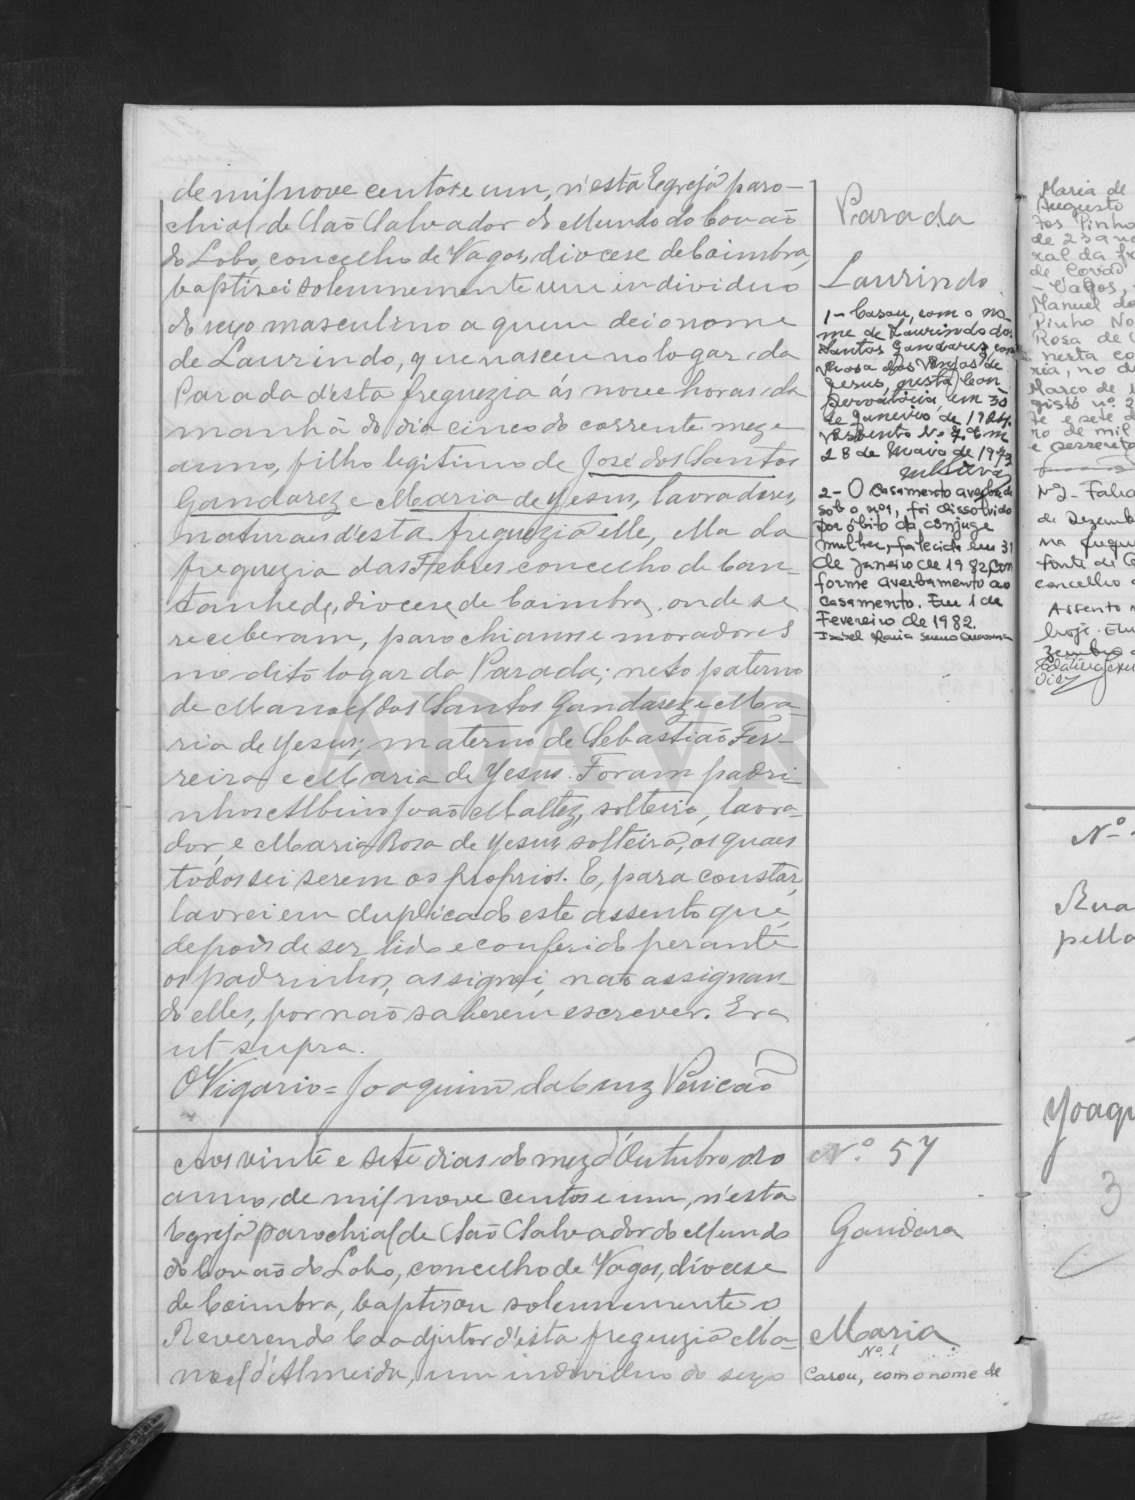 de mil nove centos e um, n'esta Egreja paro-
chial de São Salvador do Mundo do Covão
do Lobo, concelho de Vagos, diocese de Coimbra,
baptisei solemnemente um individuo
do sexo masculino a quem dei o nome
de Laurindo, que nasceu no logar da
Parada d'esta freguezia ás nove horas da
manhã do dia cinco do corrente mez e
anno, filho legitimo de José dos Santos
Gandarez e Maria de Jesus, lavradores,
naturaes d'esta freguezia elle, ella da
freguezia das Febres concelho de Can-
tanhede, diocese de Coimbra, onde se
receberam, parochianos e moradores
no dito logar da Parada; neto paterno
de Manoel dos Santos Gandarez e Ma-
ria de Jesus; materno de Sebastião Fer-
reira e Maria de Jesus. Foram padri-
nhos Albino João Maltez, solteiro, lavra-
dor, e Maria Rosa de Jesus, solteira, os quaes
todos sei serem os proprios. E, para constar,
lavrei em duplicado este assento que,
depois de ser lido e conferido perante
os padrinhos, assignei, não assignan-
do elles, por não saberem escrever. Era
ut supra.
O Vigario = Joaquim da Cruz Pericão
Parada
Laurindo
1- Casou, com o no-
me de Laurindo dos
Santos Gandarez, com
Rosa dos de
Jesus, nesta Con
servatória em 30
de Janeiro de
28 de Maio de 1973
2- O casamento averbado
sob o nº1, foi dissolvido
por óbito da cônjuge
mulher, falecida em 31
de Janeiro de 1982, con
forme averbamento ao
casamento. Em 1 de
Fevereiro de 1982.
Isabel Maria
Aos vinte e sete dias do mez d'Outubro do
anno de mil nove centos e um, n'esta
Egreja parochial de São Salvador do Mundo
do Covão do Lobo, concelho de Vagos, diocese
de Coimbra, baptisou solemnemente o
Reverendo Coadjutor d'esta freguezia Ma-
noel d'Almeida, um individuo do sexo
Nº 57
Gandara
Maria
Nº 1
Casou, com o nome de
Maria de
Augusto
tos Pinho
de 23 an
ral da Fr
de Covão
- Vagos,
Manuel d
Pinho No
Rosa de
nesta co
ria, no d
Março de
gisto nº 2
te e sete d
ro de mil
e
Nº2- Fale
de Dezemb
na fregue
Fonte de
concelho
Assento n
hoje. Em
zembro
Nº
Rua
pella
Joaqu
3
ADAVR